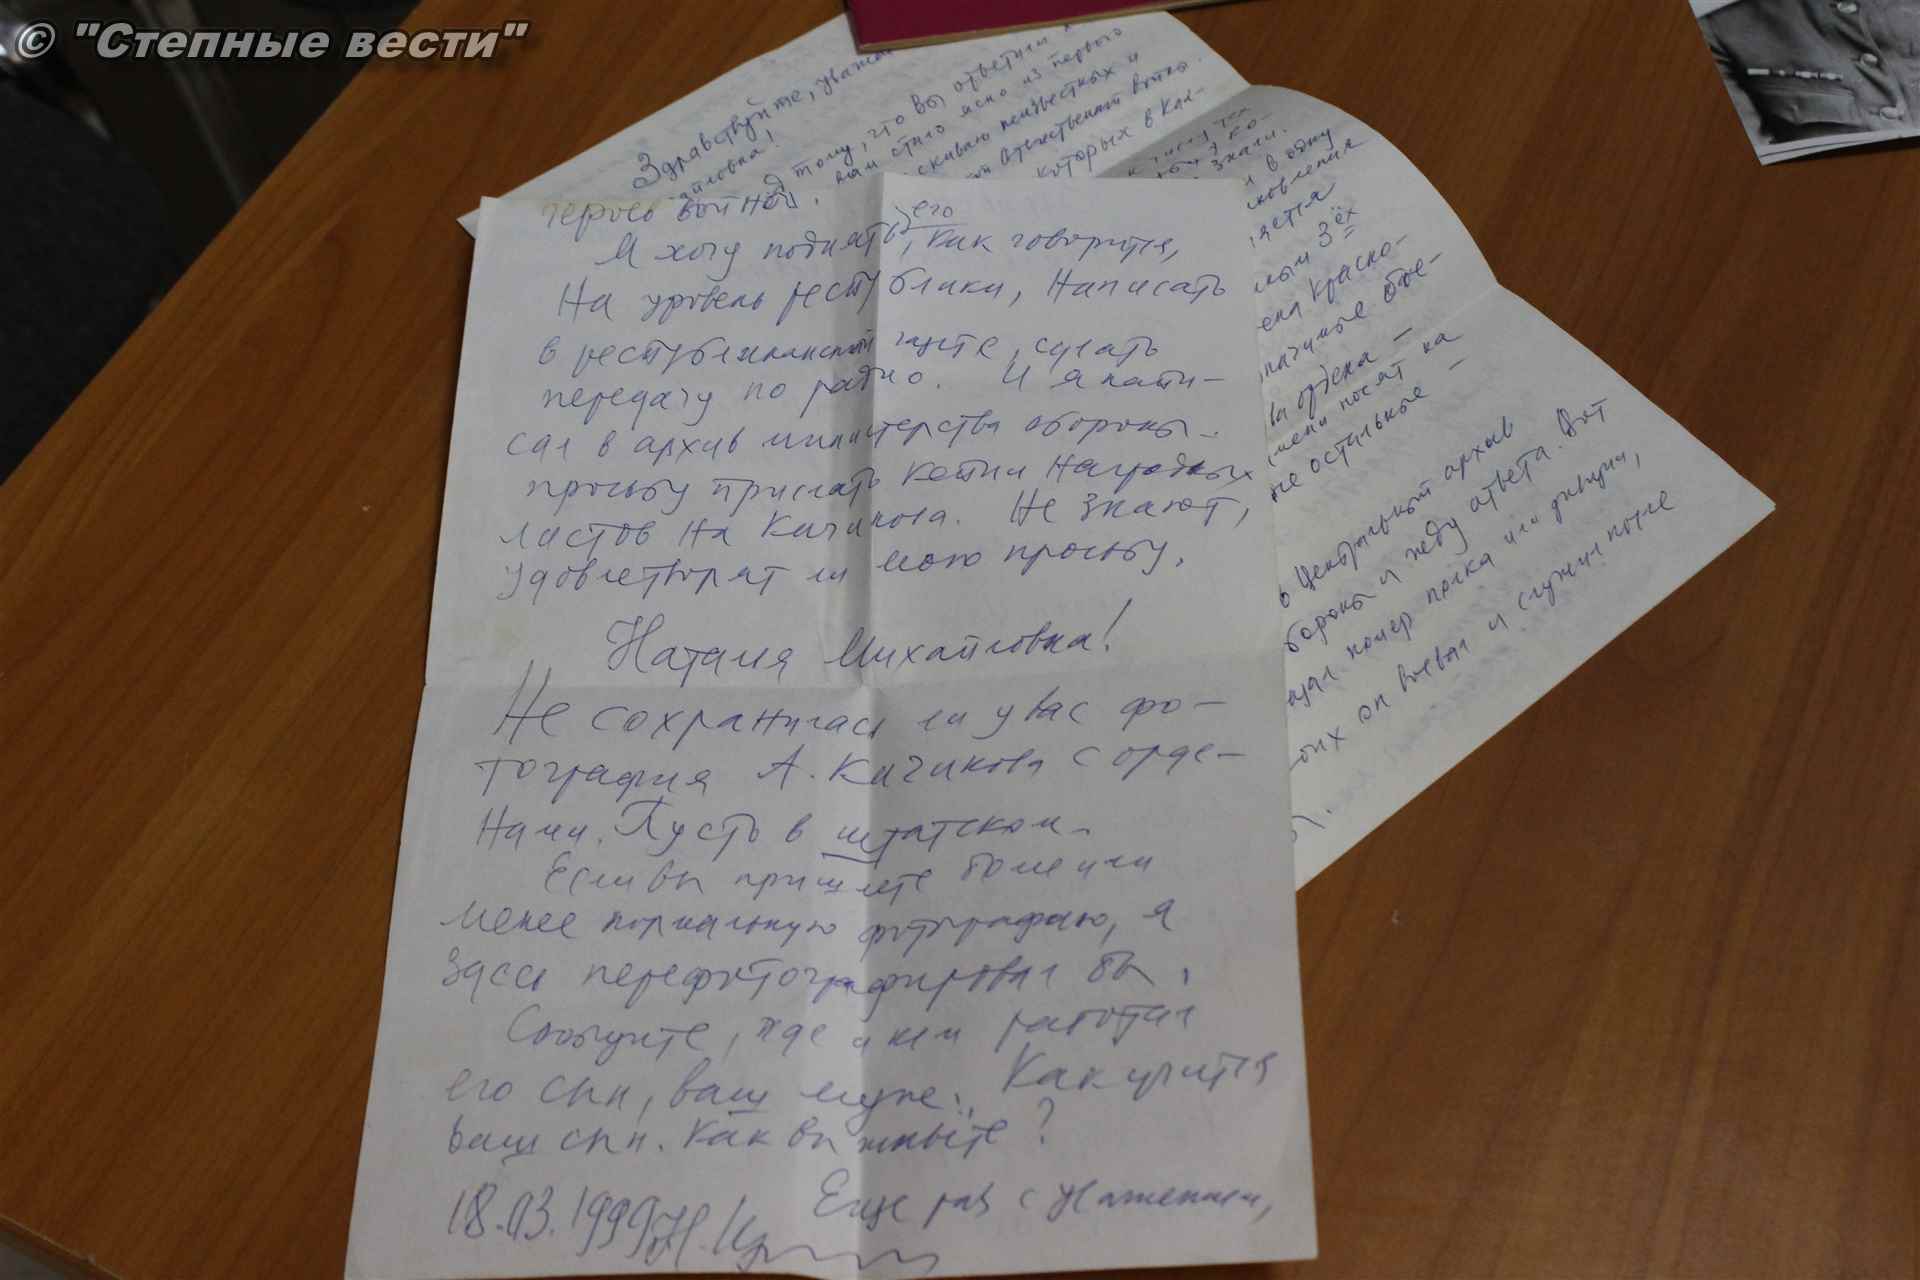 © "Степные вести"
Здравствуйте, уважа
йловна!
тому, что вы ответили
вам стало ясно из первого
скиваю неизвестных и
Отечественной войны.
которых в Кал-
героев войной.
его
Я хочу поднять, как говорится,
На уровень республики, Написать
в республиканской газете, сделать
передачу по радио. И я напи-
сал в архив министерства обороны.
просьбу прислать копии Наградных
листов На Кичикова. Не знают,
удовлетворят ли мою просьбу.
Наталия Михайловна!
Не сохранилась ли у вас фо-
тография А. Кичикова с орде-
Нами. Пусть в штатском.
Если вы пришлете более или
менее нормальную фотографию, я
здесь перефотографировал бы.
Сообщите, где и кем работал
его сын, ваш муж. Как учится
ваш сын. Как вы живёте?
Еще раз с уважением,
18.03.1999
знали.
в одну
новления
яется
ным 3ёх
ена Красно-
ва ордена –
мени носят на
не остальные –
в Центральный архив
бороны и жду ответа. Вот
номер полка или дивизии,
оих он воевал и служил после